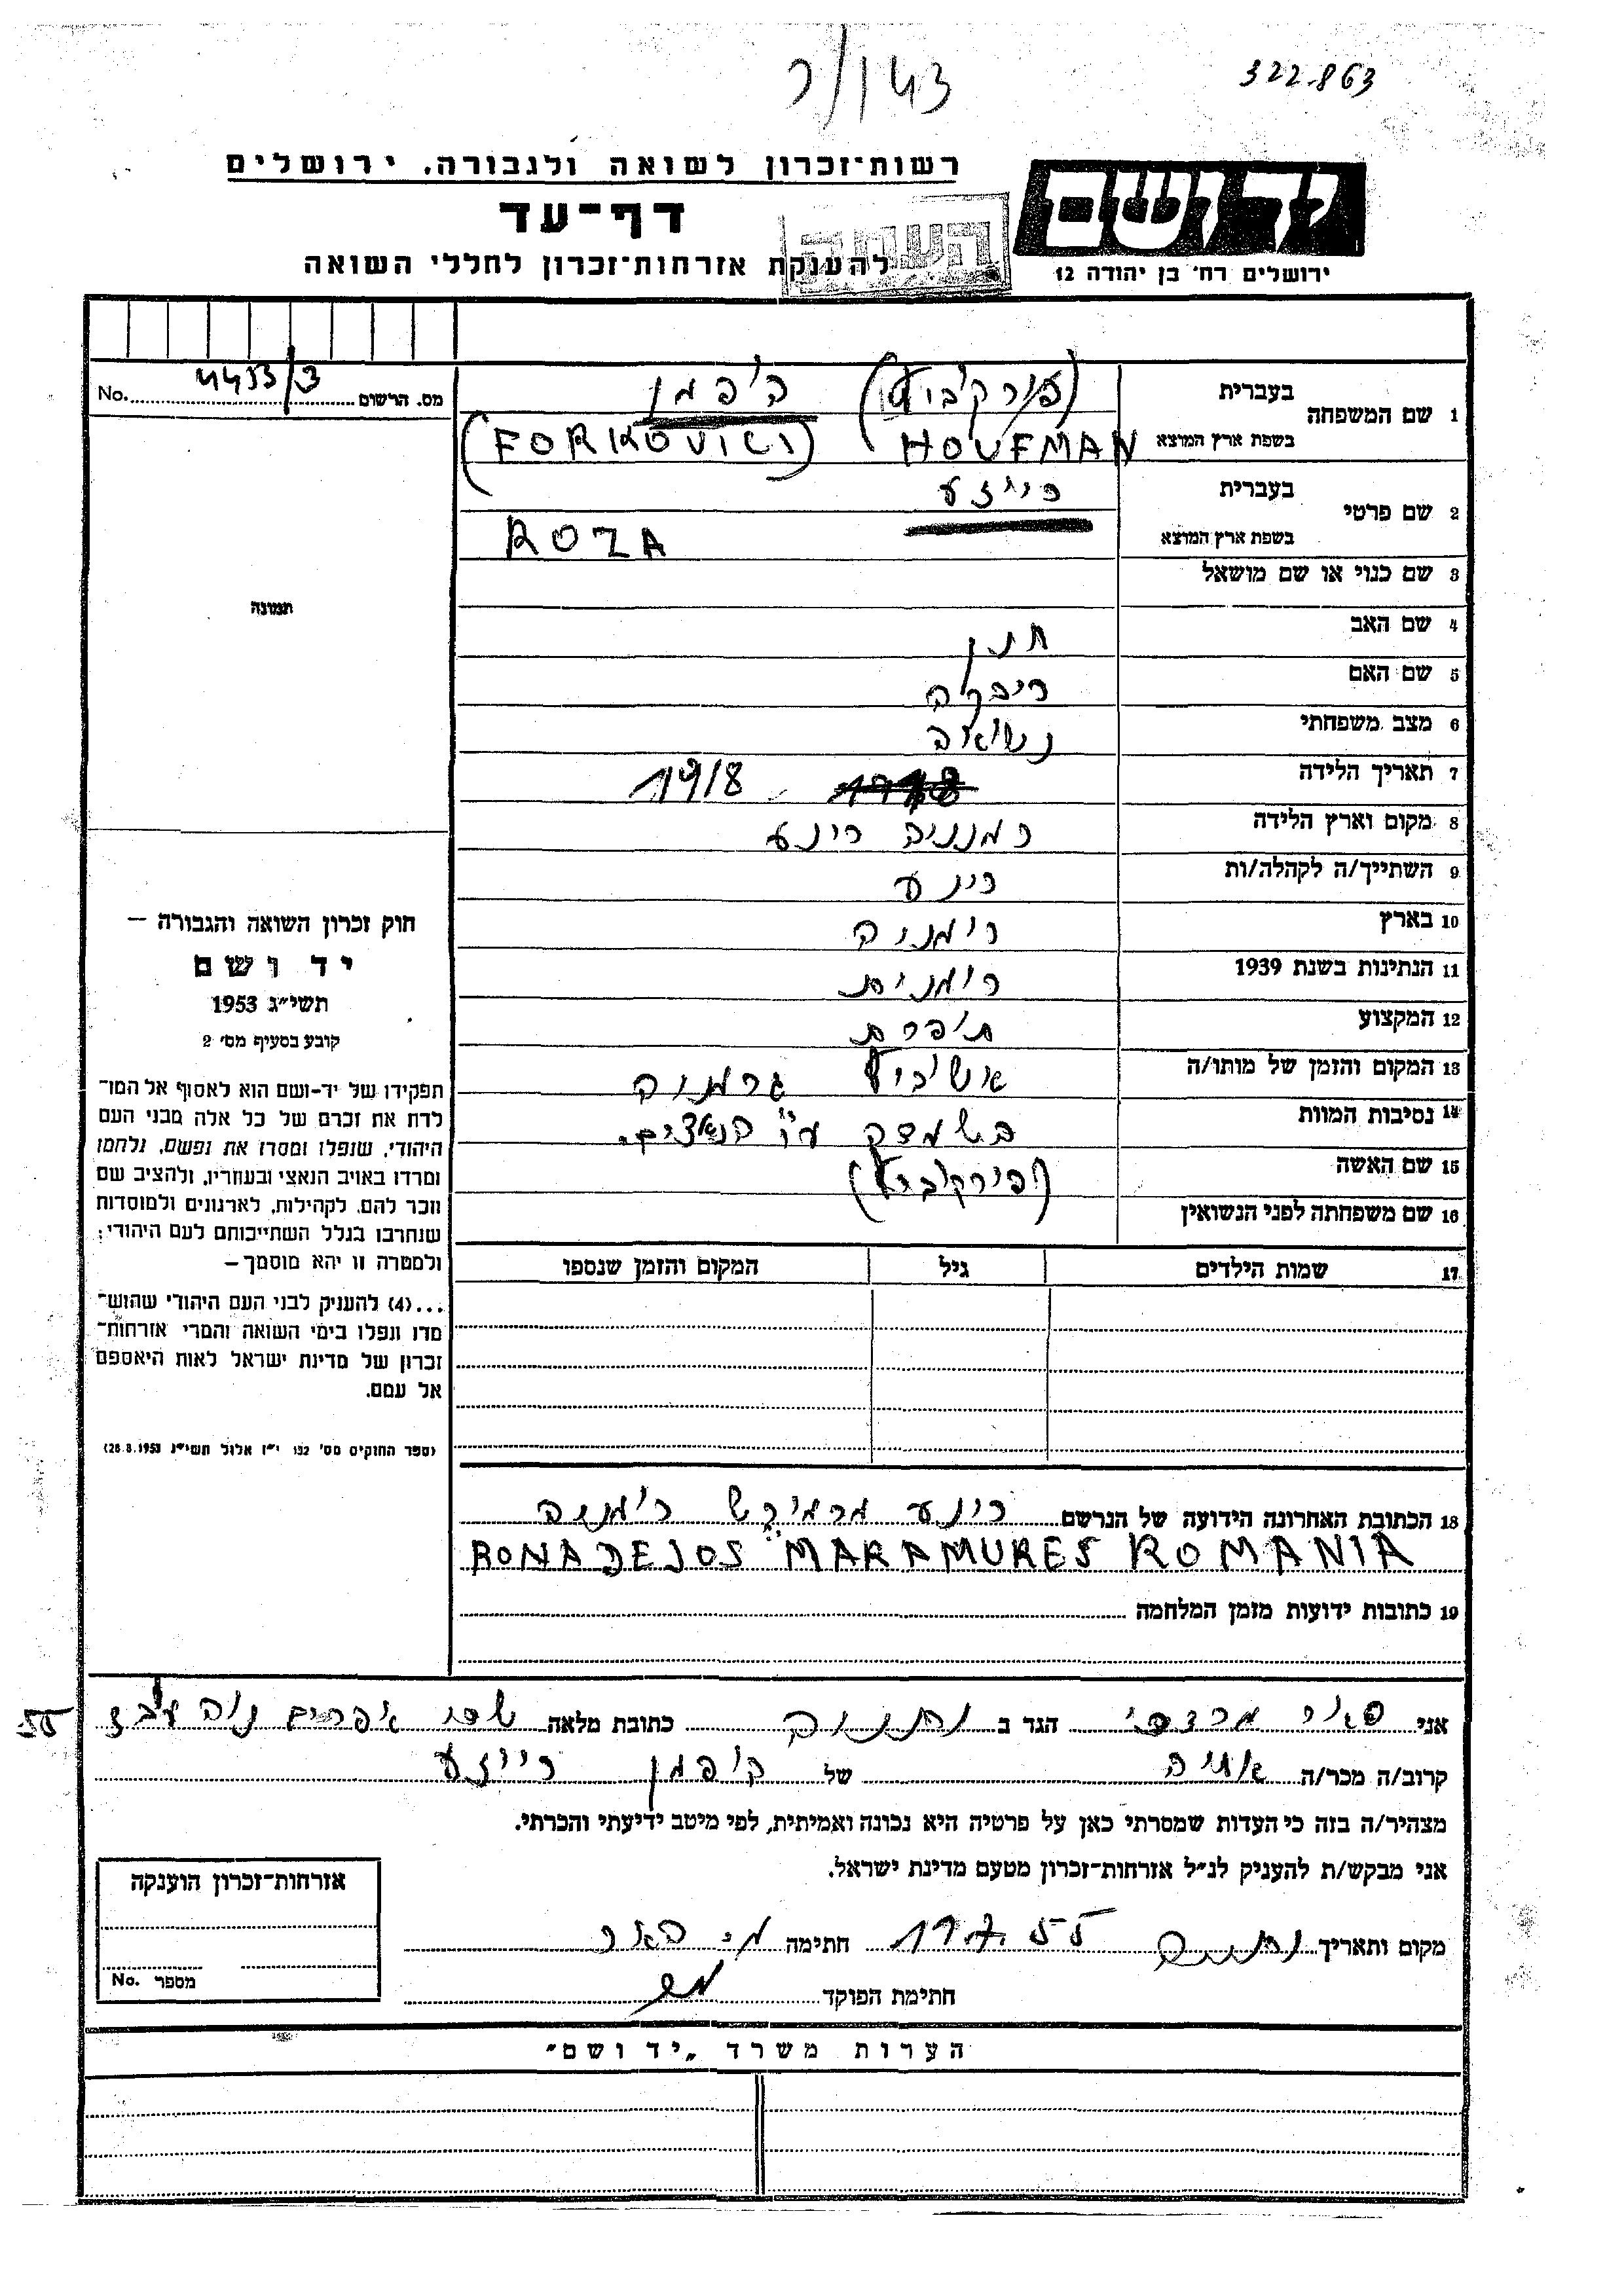 ר/143
322.863
רשות־זכרון לשואה ולגבורה, ירושלים
יד ושם
דף־עד
להענקת אזרחות־זכרון לחללי השואה
ירושלים רח' בן יהודה 12
No. 4453/3 מס. הרשום
1 שם המשפחה
בעברית הופמן (פורקוביץ)
בשפת ארץ המוצא HOUFMAN (FORKOVICI)
2 שם פרטי
בעברית רייזע
בשפת ארץ המוצא ROZA
3 שם כנוי או שם מושאל
4 שם האב חנן
5 שם האם ריבקה
6 מצב משפחתי נשואה
7 תאריך הלידה 1918
8 מקום וארץ הלידה רמנניה רינע
9 השתייך/ה לקהלה/ות רינע
10 בארץ רומניה
11 הנתינות בשנת 1939 רומנית
12 המקצוע תופרת
13 המקום והזמן של מותו/ה אושביץ גרמניה
14 נסיבות המוות הושמדה ע"י הנאצים.
15 שם האשה
16 שם משפחתה לפני הנשואין (פורקוביץ)
17 שמות הילדים גיל המקום והזמן שנספו
תמונה
חוק זכרון השואה והגבורה —
יד ושם
תשי"ג 1953
קובע בסעיף מס' 2
תפקידו של יד־ושם הוא לאסוף אל המו־
לדת את זכרם של כל אלה מבני העם
היהודי, שנפלו ומסרו את נפשם, נלחמו
ומרדו באויב הנאצי ובעוזריו, ולהציב שם
וזכר להם, לקהילות, לארגונים ולמוסדות
שנחרבו בגלל השתייכותם לעם היהודי;
ולמטרה זו יהא מוסמך —
...(4) להעניק לבני העם היהודי שהוש־
מדו ונפלו בימי השואה והמרי אזרחות־
זכרון של מדינת ישראל לאות היאספם
אל עמם.
(ספר החוקים מס' 132 י"ז אלול תשי"ג 28.8.1953)
18 הכתובת האחרונה הידועה של הנרשם רינע מרמורש רומניה
RONA DE JOS MARAMURES ROMANIA
19 כתובות ידועות מזמן המלחמה
אני מרדכי הגר ב נתניה כתובת מלאה אפרים 55
קרוב/ה מכר/ה אחיה של הופמן רייזע
מצהיר/ה בזה כי העדות שמסרתי כאן על פרטיה היא נכונה ואמיתית, לפי מיטב ידיעתי והכרתי.
אני מבקש/ת להעניק לנ"ל אזרחות־זכרון מטעם מדינת ישראל.
מקום ותאריך נתניה 17.7.55 חתימה
חתימת הפוקד
אזרחות־זכרון הוענקה
No. מספר
הערות משרד „יד ושם"